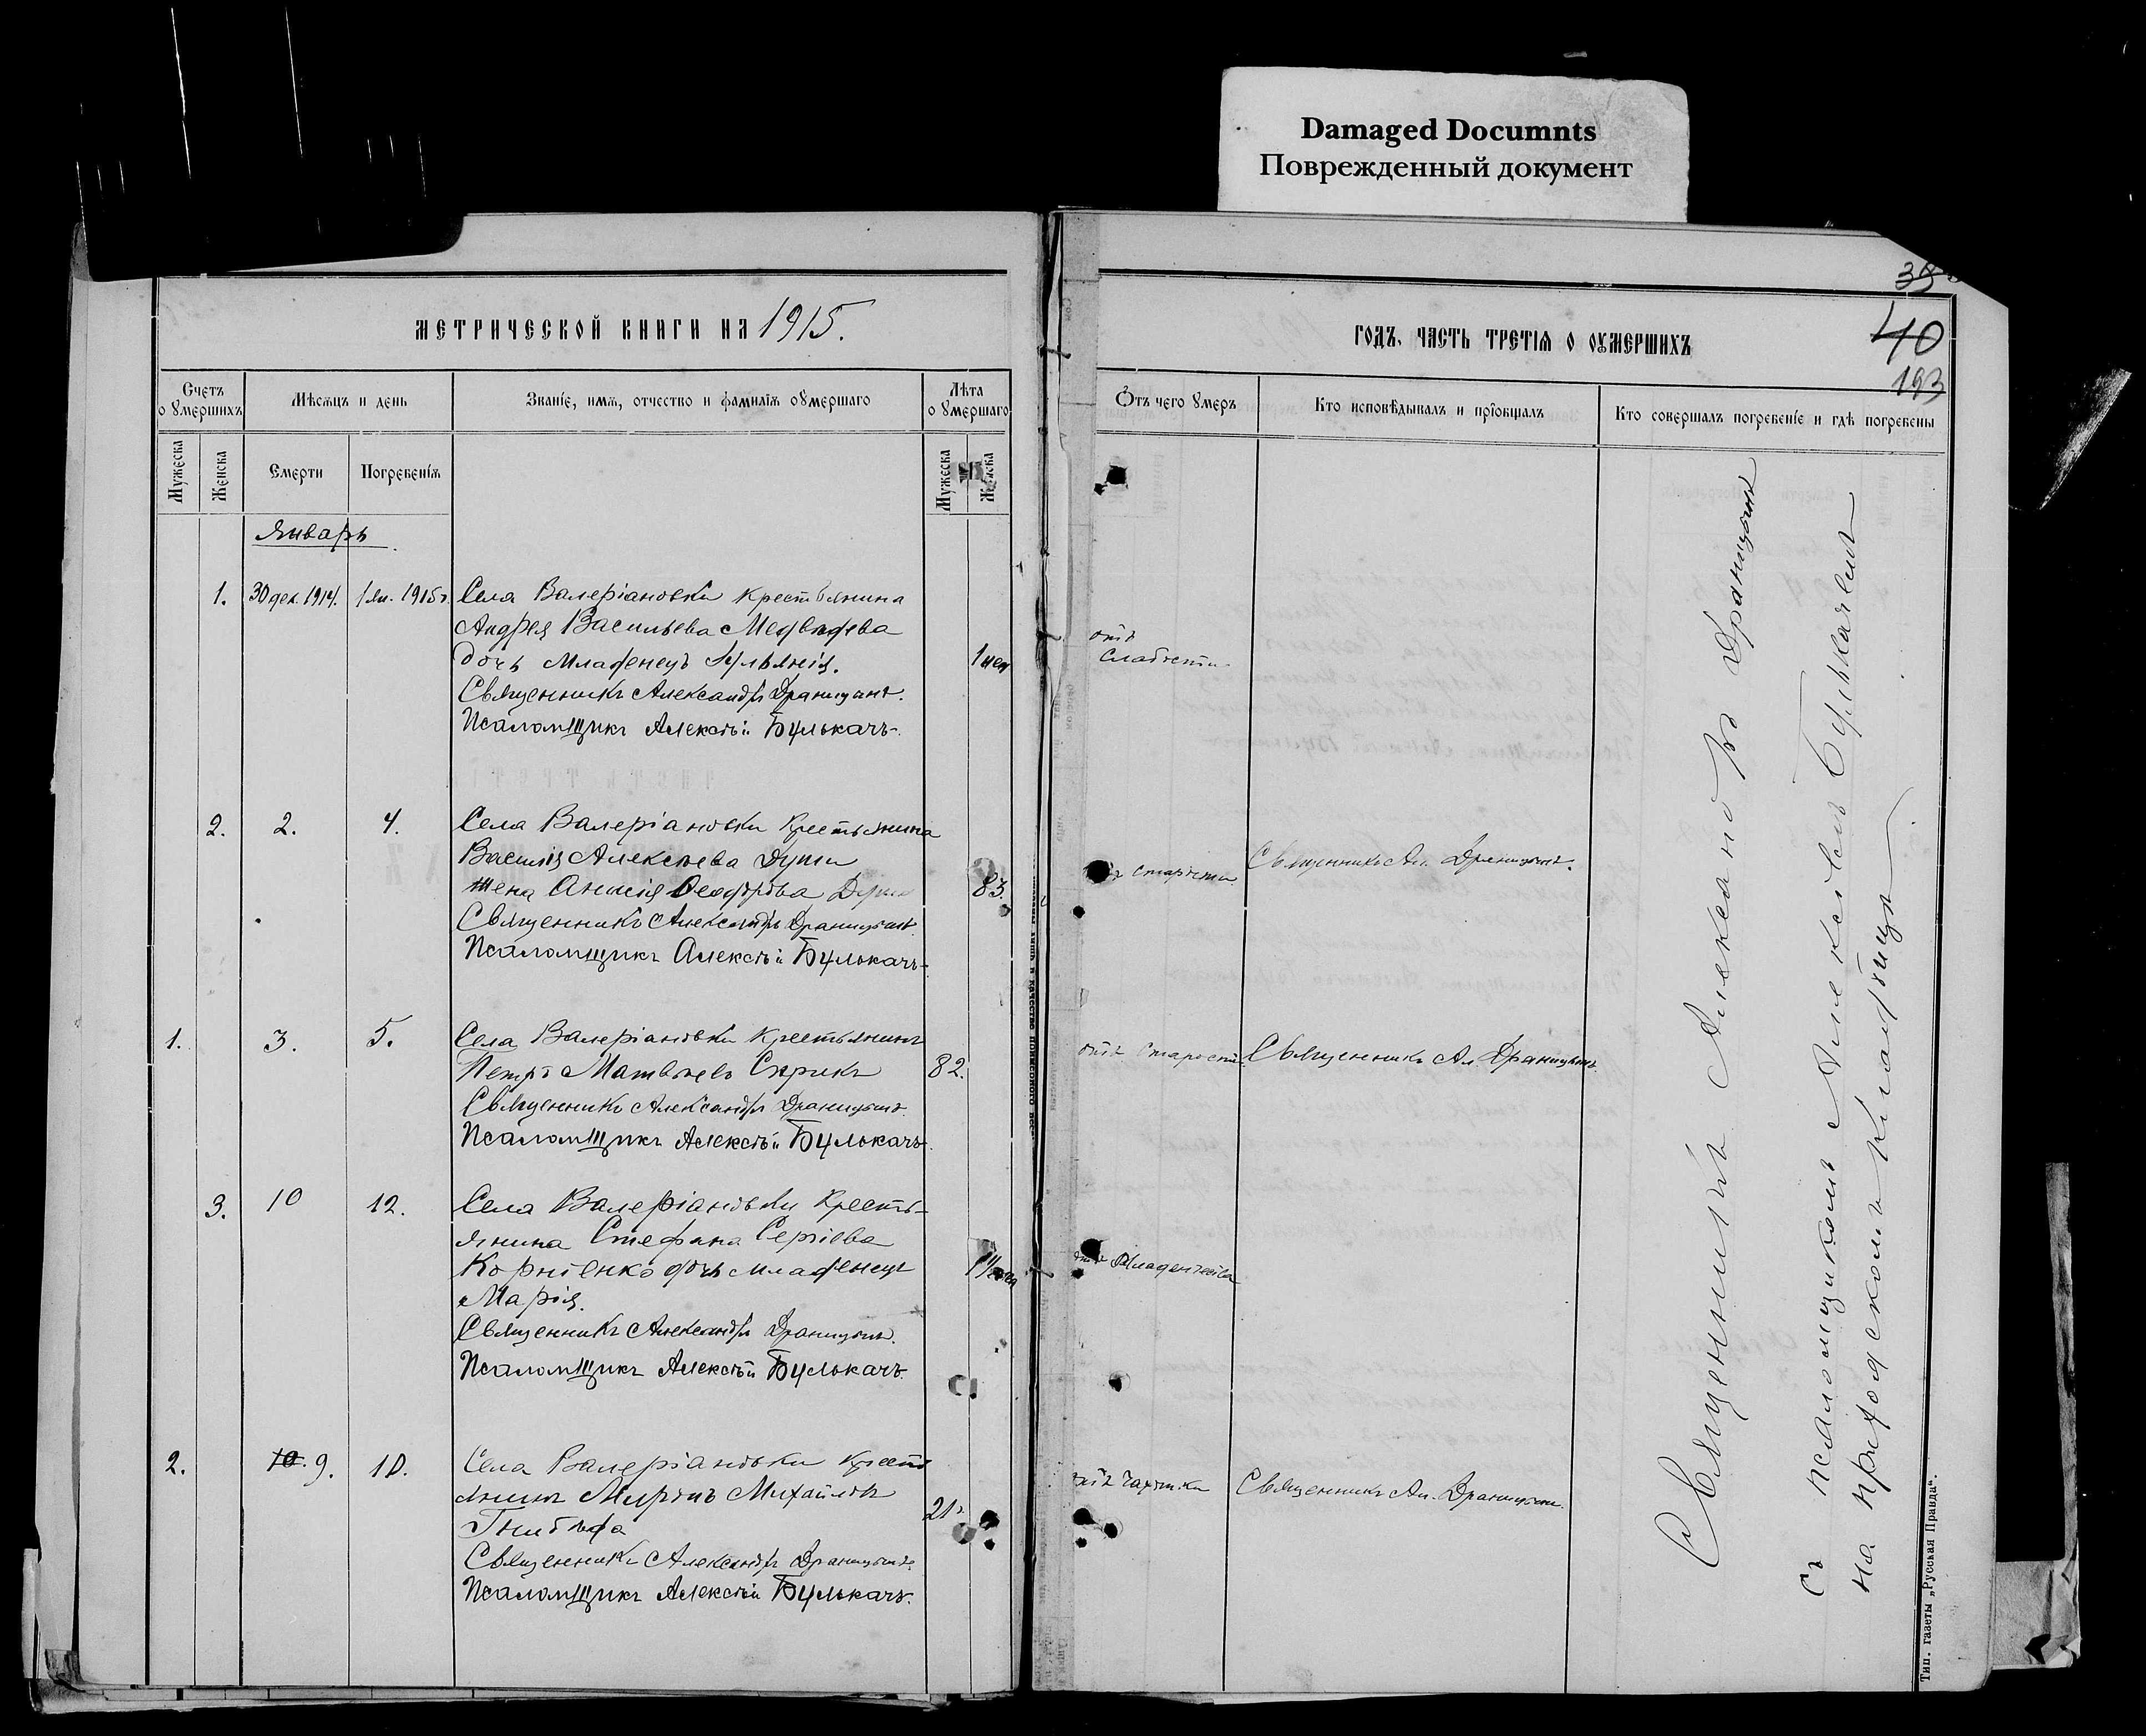 Damaged Documnts
Поврежденный документ
39
40
193
МЕТРИЧЕСКОЙ КНИГИ НА 1915.
Счетъ о умершихъ
Мѣсяцъ и день
Званіе, имя, отчество и фамилія оумершаго
Лѣта о умершаго
Мужеска
Женска
Смерти
Погребенія
Мужеска
Женска
Январь
1. 30 дек. 1914. 1 ян. 1915 г. Села Валеріановки крестьянина
Андрея Васильева Медвѣдева
дочь младенецъ Іульянія. 1 мѣс
Священникъ Александръ Драницынъ.
Псаломщикъ Алексѣй Булькачъ.
2. 2. 4. Села Валеріановки крестьянина
Василія Алексѣева
жена Анисія Феодорова 83.
Священникъ Александръ Драницынъ.
Псаломщикъ Алексѣй Булькачъ.
1. 3. 5. Села Валеріановки крестьянинъ
Петръ Матвѣевъ Сѣрикъ 82.
Священникъ Александръ Драницынъ.
Псаломщикъ Алексѣй Булькачъ.
3. 10 12. Села Валеріановки кресть-
янина Стефана Сергіева
Корніенко дочь младенецъ
Марія.
Священникъ Александръ Драницынъ.
Псаломщикъ Алексѣй Булькачъ.
2. 10. 9. 10. Села Валеріановки кресть
янинъ Миронъ Михайловъ
Гнибѣда 21
Священникъ Александръ Драницынъ.
Псаломщикъ Алексѣй Булькачъ.
ГОДЪ, ЧАСТЬ ТРЕТІЯ О ОУМЕРШИХЪ
Отъ чего умеръ
Кто исповѣдывалъ и пріобщалъ
Кто совершалъ погребеніе и гдѣ погребены
отъ
слабости
старости Священникъ Ал. Драницынъ.
отъ старости. Священникъ Ал. Драницынъ.
отъ младенчества
отъ чахотки Священникъ Ал. Драницынъ.
Священникъ Александръ Драницынъ
съ псаломщикомъ Алексѣемъ Булькачемъ
на приходскомъ кладбищѣ
Тип. газеты „Русская Правда“.